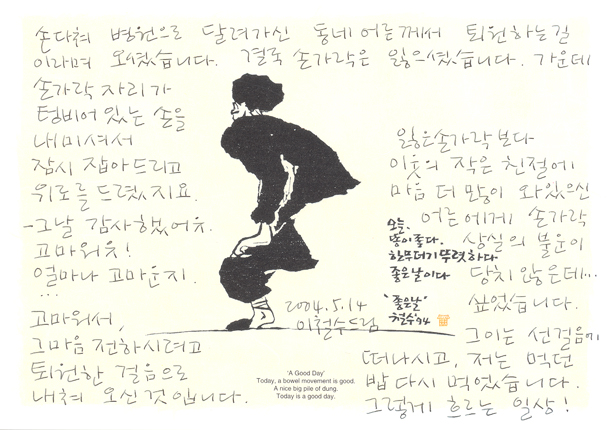 손 다쳐 병원으로 달려가신 동네 어른께서 퇴원하는 길
이라며 오셨습니다. 결국 손가락은 잃으셨습니다. 가운데
손가락 자리가
텅비어 있는 손을
내미셔서
잠시 잡아드리고
위로를 드렸지요.
-그날 감사했어유.
고마워유!
얼마나 고마운지.
...
고마워서,
그마음 전하시려고
퇴원한 걸음으로
내쳐 오신것입니다.
잃은손가락보다
이웃의 작은 친절에
마음 더 많이 와있으신
어른에게 손가락
상실의 불운이
당치 않은데...
싶었습니다.
그이는 선걸음에
떠나시고, 저는 먹던
밥 다시 먹었습니다.
그렇게 흐르는 일상!
오늘,
똥이 좋다.
한무더기 뚜렷하다
좋은날이다
'좋은날'
철수'94
2004.5.14
이철수드림
'A Good Day'
Today, a bowel movement is good.
A nice big pile of dung.
Today is a good day.